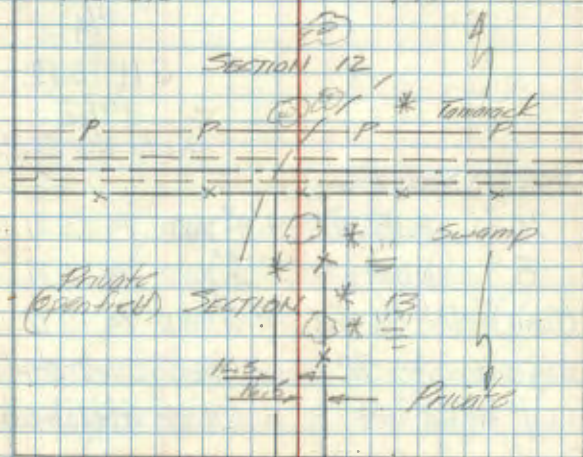 SECTION 12
Tamarack
P P P P
Swamp
Private
(Openfield)
SECTION 13
16.5
16.5
Private